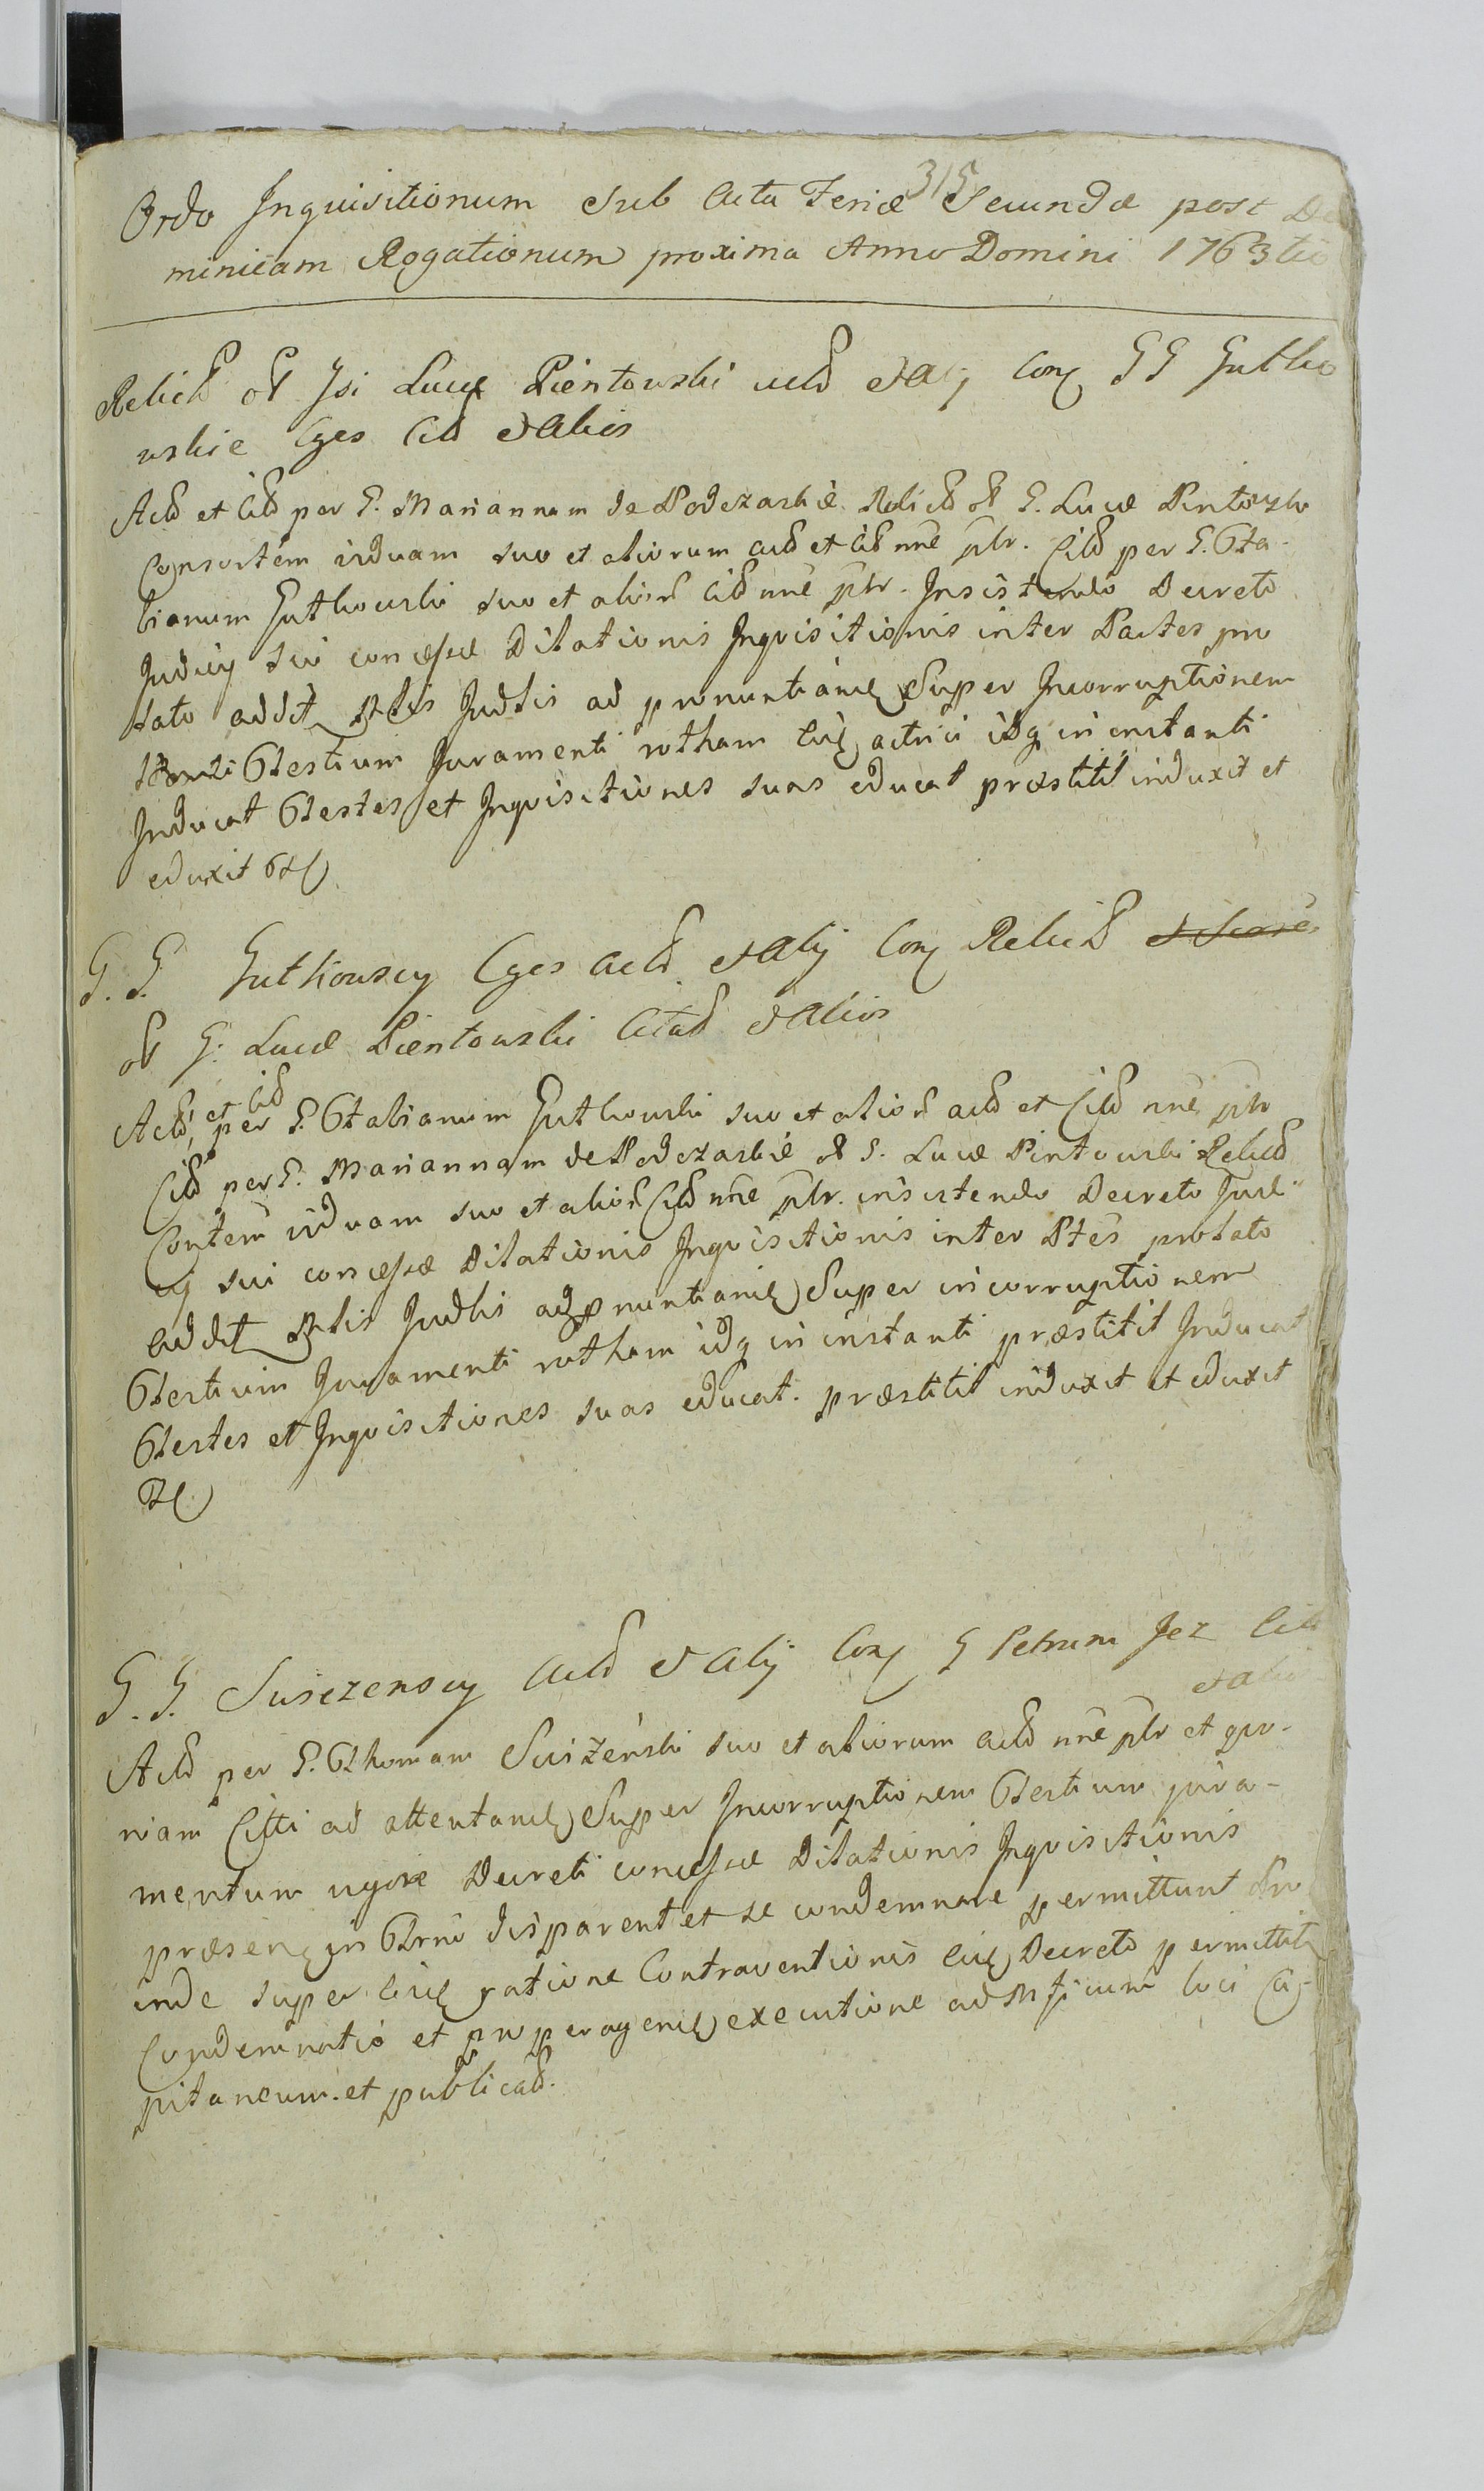 315
Ordo Inquisitionum sub Acta Feriæ Secundæ post Do
minicam Rogationum proxima Anno Domini 1763tio
Relict olĩ Gsi Lucæ Pientowski actt et alÿ Con G G Gutko
wskie Cges Citt et alios
Actt et Citt per G. Mariannam de Podczaskie Relict olĩ G. Lucæ Pintowski
Consortem viduam suo et aliorum actt et citt nñe plr. Citt per G. Sta-
bianum Gutkowski suo et alior Citt nñe plr. Insistendo Decreto
Judicÿ sui concessæ Dilationis Inquisitionis inter Partes pro
lato addit Judlis ad pronuntian Super Incorruptionem
Testium Juramenti rotham actrici idq in instanti
Inducat Testes et Inquisitiones suas educat præstitit induxit et
eduxit
G. G. Gutkowscy Cges actt et alÿ Con Relict
olĩ G. Lucæ Pientowski Citat et alios
Actt, et citt per G. Stabianum Gutkowski suo et alior actt et Citt nñe plr
Citt per G. Mariannam de Podczaskie olĩ G. Lucæ Pintowski Relict
Contem viduam suo et alior Citt nñe plr. insistendo Decreto Judi
cÿ sui concessæ Dilationis Inquisitionis inter Ptes prolato
addit Judlis ad pnuntian Super incorruptionem
Testium Juramenti rotham idq in instanti præstitit Inducat
Testes et Inquisitiones suas educat. præstitit induxit et eduxit
G. G. Swiezenscy actt et alÿ Con G Petrum Jez Citt
et alios
Actt per G. Thomam Swiżeński suo et aliorum actt nñe plr et quo-
niam Citti ad attentan Super Incorruptionem Testium jura-
mentum vigore Decreti concessæ Dilationis Inquisitionis
præsen in Trno disparent et se condemnare permittunt Pro
inde super ratione Contraventionis Decreto permittit
Condemnatio et pro peragen executione ad Officium loci Ca-
pitaneum. et publicatt.